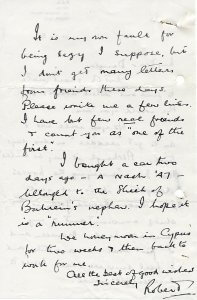 It is my own fault for
being lazy I suppose, but
I don't get many letters
from friends these days.
Please write me a few lines.
I have but few real friends
& count you as "one of the
first".
I bought a car two
days ago – A Nash '47 –
belonged to the Sheik of
Bahrein's nephew. I hope it
is a "runner".
We honeymoon in Cyprus
for two weeks & then back to
work for me.
All the best of good wishes
Sincerely
Robert